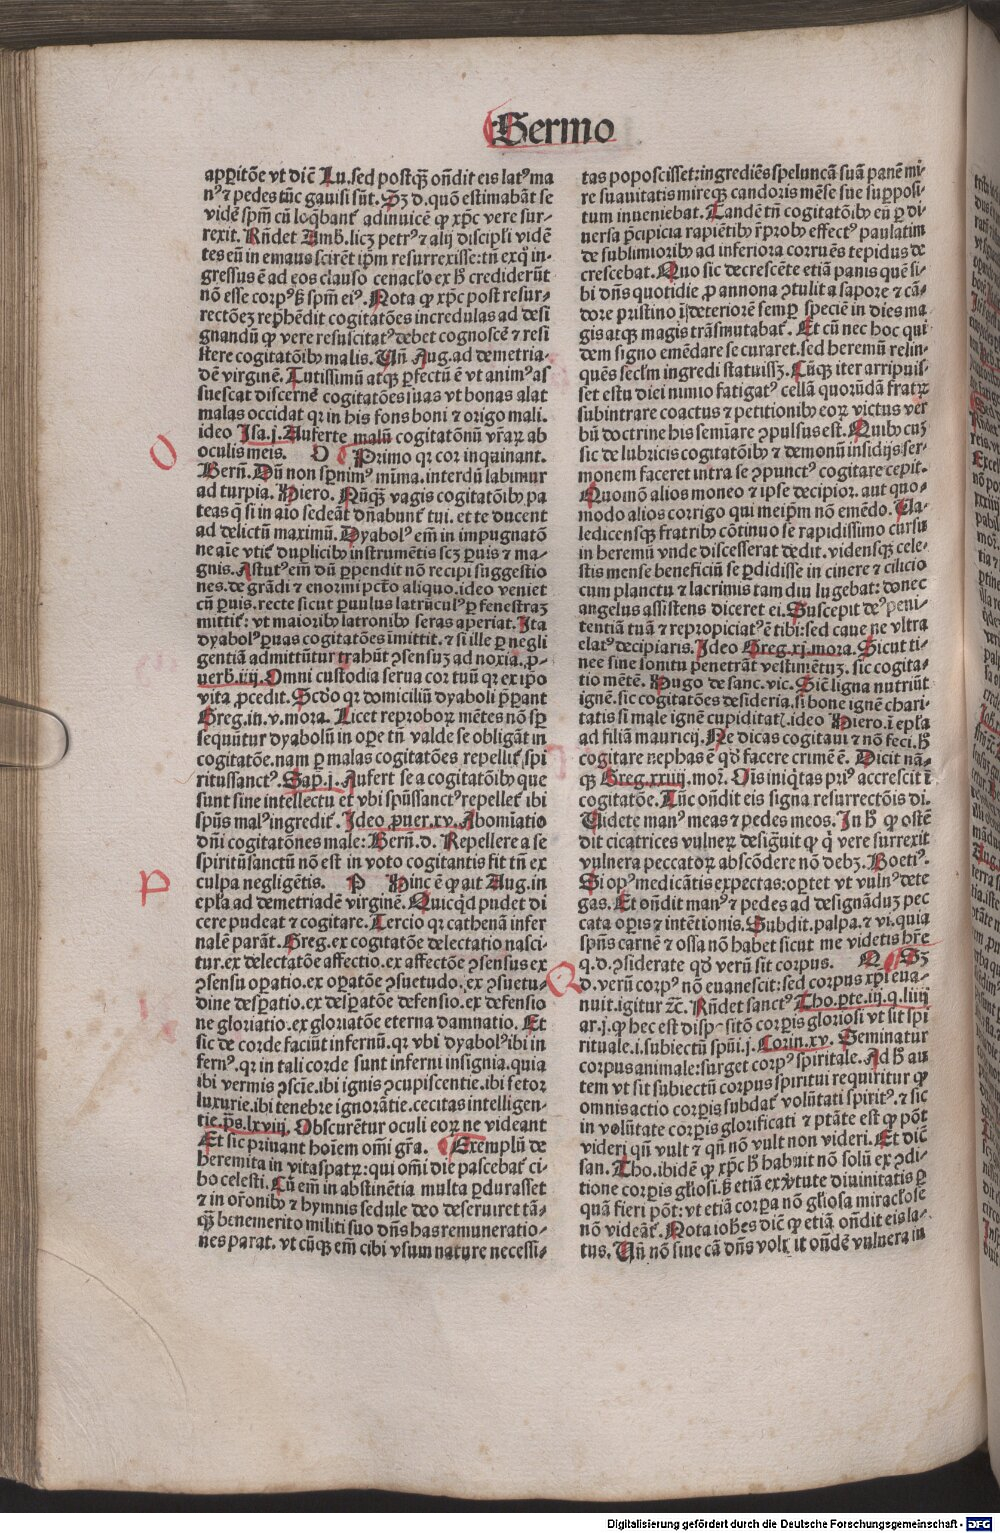 Sermo
apparitōe vt dic̄ Lu. sed postq̄ᷓ on̄dit eis latꝰ ma
nꝰ ⁊ pedes tūc gauisi sūt. Sꝫ d. quō estimabāt se
vidē spm̄ cū loq̄bant̄ adinuicē ꝙ xp̄c vere sur-
rexit. Rn̄det Amb. licꝫ petrꝰ ⁊ alij discipl̓i vidē
tes eū in emaus scirēt ip̄m resurrexisse: tn̄ exq̇ in-
gressus ē ad eos clauso cenaclo ex ꝓ crediderūt
nō esse corpꝰ ꝫ spm̄ eiꝰ. Nota ꝙ xp̄c post resur-
rectōeꝫ rep̄hēdit cogitatōes incredulas ad desi
gnandū ꝙ vere resuscitatꝰ debet cognoscē ⁊ resi
stere cogitatōibꝰ malis. Un̄ Aug. ad demetria
dē virginē. Tutissimū atqꝫ ꝑfectū ē vt animꝰ as
suescat discernē cogitatōes suas vt bonas alat
malas occidat qr in his fons boni ⁊ origo mali.
ideo Isa. j. Auferte malū cogitatōnū vr̄aꝝ ab
oculis meis. O Primo qr cor inquinant.
Bern̄. Dū non sp̄nimꝰ mīma. interdū labimur
ad turpia. Hiero. Nūqꝫ vagis cogitatōibꝰ pa
teas q̄ si in aīo sedeāt dn̄abunt̄ tui. et te ducent
ad delictū maximū. Dyabolꝰ em̄ in impugnatō
ne aīe vtit̄ duplicibꝰ instrumētis scꝫ ꝑuis ⁊ ma-
gnis. Astutꝰ em̄ dū ꝑpendit nō recipi suggestio
nes. de grādi ⁊ enormi pctō aliquo. ideo veniet
cū ꝑuis. recte sicut ꝑuulus latrūculꝰ ꝑ fenestraꝫ
mittit̄: vt maioribꝰ latronibꝰ seras aperiat. Ita
dyabolꝰ ꝑuas cogitatōes īmittit. ⁊ si ille ꝑ negli
gentiā admittūtur trahūt ꝯsensuꝫ ad noxia. ꝓ-
uerb. iiij. Omni custodia serua cor tuū qr ex ip̄o
vita ꝓcedit. Scd̄o qr domiciliū dyaboli p̄parant
Greg. in. v. mora. Licet reproboꝝ mētes nō sꝑ
sequūtur dyabolū in oꝑe tn̄ valde se obligāt in
cogitatōe. nam ꝑ malas cogitatōes repellit̄ spi
ritussanctꝰ. Sap. j. Aufert se a cogitatōibꝰ que
sunt sine intellectu et vbi spūssanctꝰ repellet̄ ibi
spūs malꝰ ingredit̄. Ideo ꝓuer. xv. Abomīatio
dn̄i cogitatōnes male: Bern̄. d. Repellere a se
spiritūsanctū nō est in voto cogitantis fit tn̄ ex
culpa negligētis. P Hinc ē ꝙ ait Aug. in
epl̓a ad demetriadē virginē. Quicq̄d pudet di
cere pudeat ⁊ cogitare. Tercio qr cathenā infer
nalē parāt. Greg. ex cogitatōe delectatio nasci-
tur. ex delectatōe affectio. ex affectōe ꝯsensus ex
ꝯsensu oꝑatio. ex oꝑatōe ꝯsuetudo. ex ꝯsuetu-
dine desꝑatio. ex desꝑatōe defensio. ex defensio
ne gloriatio. ex gloriatōe eterna damnatio. Et
sic de corde faciūt infernū. qr vbi dyabolꝰ ibi in
fernꝰ. qr in tali corde sunt inferni insignia. quia
ibi vermis ꝯscīe. ibi ignis ꝯcupiscentie. ibi fetor
luxurie. ibi tenebre ignorātie. cecitas intelligen-
tie. ps̄. lxviij. Obscurētur oculi eoꝝ ne videant
Et sic priuant hoīem om̄i gr̄a. Exemplū de
heremita in vitaspatꝝ: qui om̄i die pascebat̄ ci-
bo celesti. Cū em̄ in abstinētia multa ꝑdurasset
⁊ in or̄onibꝰ ⁊ hymnis sedule deo deseruiret tā-
qᷓꝫ benemerito militi suo dn̄s has remuneratio-
nes parat. vt cūqꝫ em̄ cibi vsum nature necessi-
tas poposcisset: ingrediēs speluncā suā panē mi-
re suauitatis mireqꝫ candoris mēse sue supposi-
tum inueniebat. Tandē tn̄ cogitatōibꝰ eū ꝑ di-
uersa p̄cipicia rapiētibꝰ r̄probꝰ effectꝰ paulatim
de sublimioribꝰ ad inferiora corruēs tepidus de
crescebat. Quo sic decrescēte etiā panis quē si-
bi dn̄s quotidie ꝓ annona ꝯtulit a sapore ⁊ cā-
dore pristino ī deteriorē semꝑ speciē in dies ma
gis atqꝫ magis trāsmutabat̄. Et cū nec hoc qui
dem signo emēdare se curaret. sed heremū relin-
quēs secl̓m ingredi statuissꝫ. Cūqꝫ iter arripuis-
set estu diei nimio fatigatꝰ cellā quorūdā fratꝝ
subintrare coactus ⁊ petitionibꝰ eoꝝ victus ver
bū doctrine his semīare ꝯpulsus est. Quibꝰ cuꝫ
sic de lubricis cogitatōibꝰ ⁊ demonū insidijs ser-
monem faceret intra se ꝯpunctꝰ cogitare cepit.
Quomō alios moneo ⁊ ipse decipior. aut quo-
modo alios corrigo qui meip̄m nō emēdo. Va-
ledicensqꝫ fratribꝰ cōtinuo se rapidissimo cursu
in heremū vnde discesserat dedit. vidensqꝫ cele-
stis mense beneficiū se ꝑdidisse in cinere ⁊ cilicio
cum planctu ⁊ lacrimis tam diu lugebat: donec
angelus assistens diceret ei. Suscepit deꝰ peni-
tentiā tuā ⁊ repropiciatꝰ ē tibi: sed caue ne vltra
elatꝰ decipiaris. Ideo Greg. xj. mora. Sicut ti-
nee sine sonitu penetrāt vestimētuꝫ. sic cogita-
tio mētē. Hugo de sanc. vic. Sic̄ ligna nutriūt
ignē. sic cogitatōes desideria. si bone ignē chari-
tatis si male ignē cupiditatꝭ. ideo Hiero. ī epl̓a
ad filiā mauricij. Ne dicas cogitaui ⁊ nō feci. ħ
cogitare nephas ē qd̓ facere crimē ē. Dicit nā-
qꝫ Greg. xxiiij. mor. Oīs iniq̄tas priꝰ accrescit ī
cogitatōe. Tūc on̄dit eis signa resurrectōis di.
Videte manꝰ meas ⁊ pedes meos. In ħ ꝙ ostē
dit cicatrices vulneꝝ desig̅uit ꝙ q̇ vere surrexit
vulnera peccatoꝝ abscōdere nō debꝫ. Boetiꝰ.
Si opꝰ medicātis expectas: oꝑtet vt vulnꝰ dete
gas. Et on̄dit manꝰ ⁊ pedes ad designāduꝫ pec
cata oꝑis ⁊ intētionis. Subdit. palpa. ⁊ vi. quia
spūs carnē ⁊ ossa nō habet sicut me videtis hr̄e
q. d. ꝯsiderate qd̓ verū sit corpus. Q Sꝫ
d. verū corpꝰ nō euanescit: sed corpus xp̄i eua-
nuit. igitur ⁊c̄. Rn̄det sanctꝰ Tho. pte. iij. q. liiij
ar. j. ꝙ hec est dispositō corꝑis gloriosi vt sit spi
rituale. i. subiectū spūi. j. Corin. xv. Seminatur
corpus animale: surget corpꝰ spiritale. Ad ħ au
tem vt sit subiectū corpus spiritui requiritur ꝙ
omnis actio corꝑis subdat̄ volūtati spiritꝰ. ⁊ sic
in volūtate corꝑis glorificati ⁊ ptāte est ꝙ pōt
videri qn̄ vult ⁊ qn̄ nō vult non videri. Et dic̄
san. Tho. ibidē ꝙ xp̄c ħ habuit nō solū ex ꝯdi-
tione corꝑis gl̓iosi. ꝫ etiā ex v̓tute diuinitatis ꝑ
quā fieri pōt: vt etiā corpa nō gl̓iosa miraclose
nō videāt̄. Nota ioh̄es dic̄ ꝙ etiā on̄dit eis la-
tus. Un̄ nō sine cā dn̄s voluit on̄dē vulnera in
O
P
Q
Digitalisierung gefördert durch die Deutsche Forschungsgemeinschaft - DFG